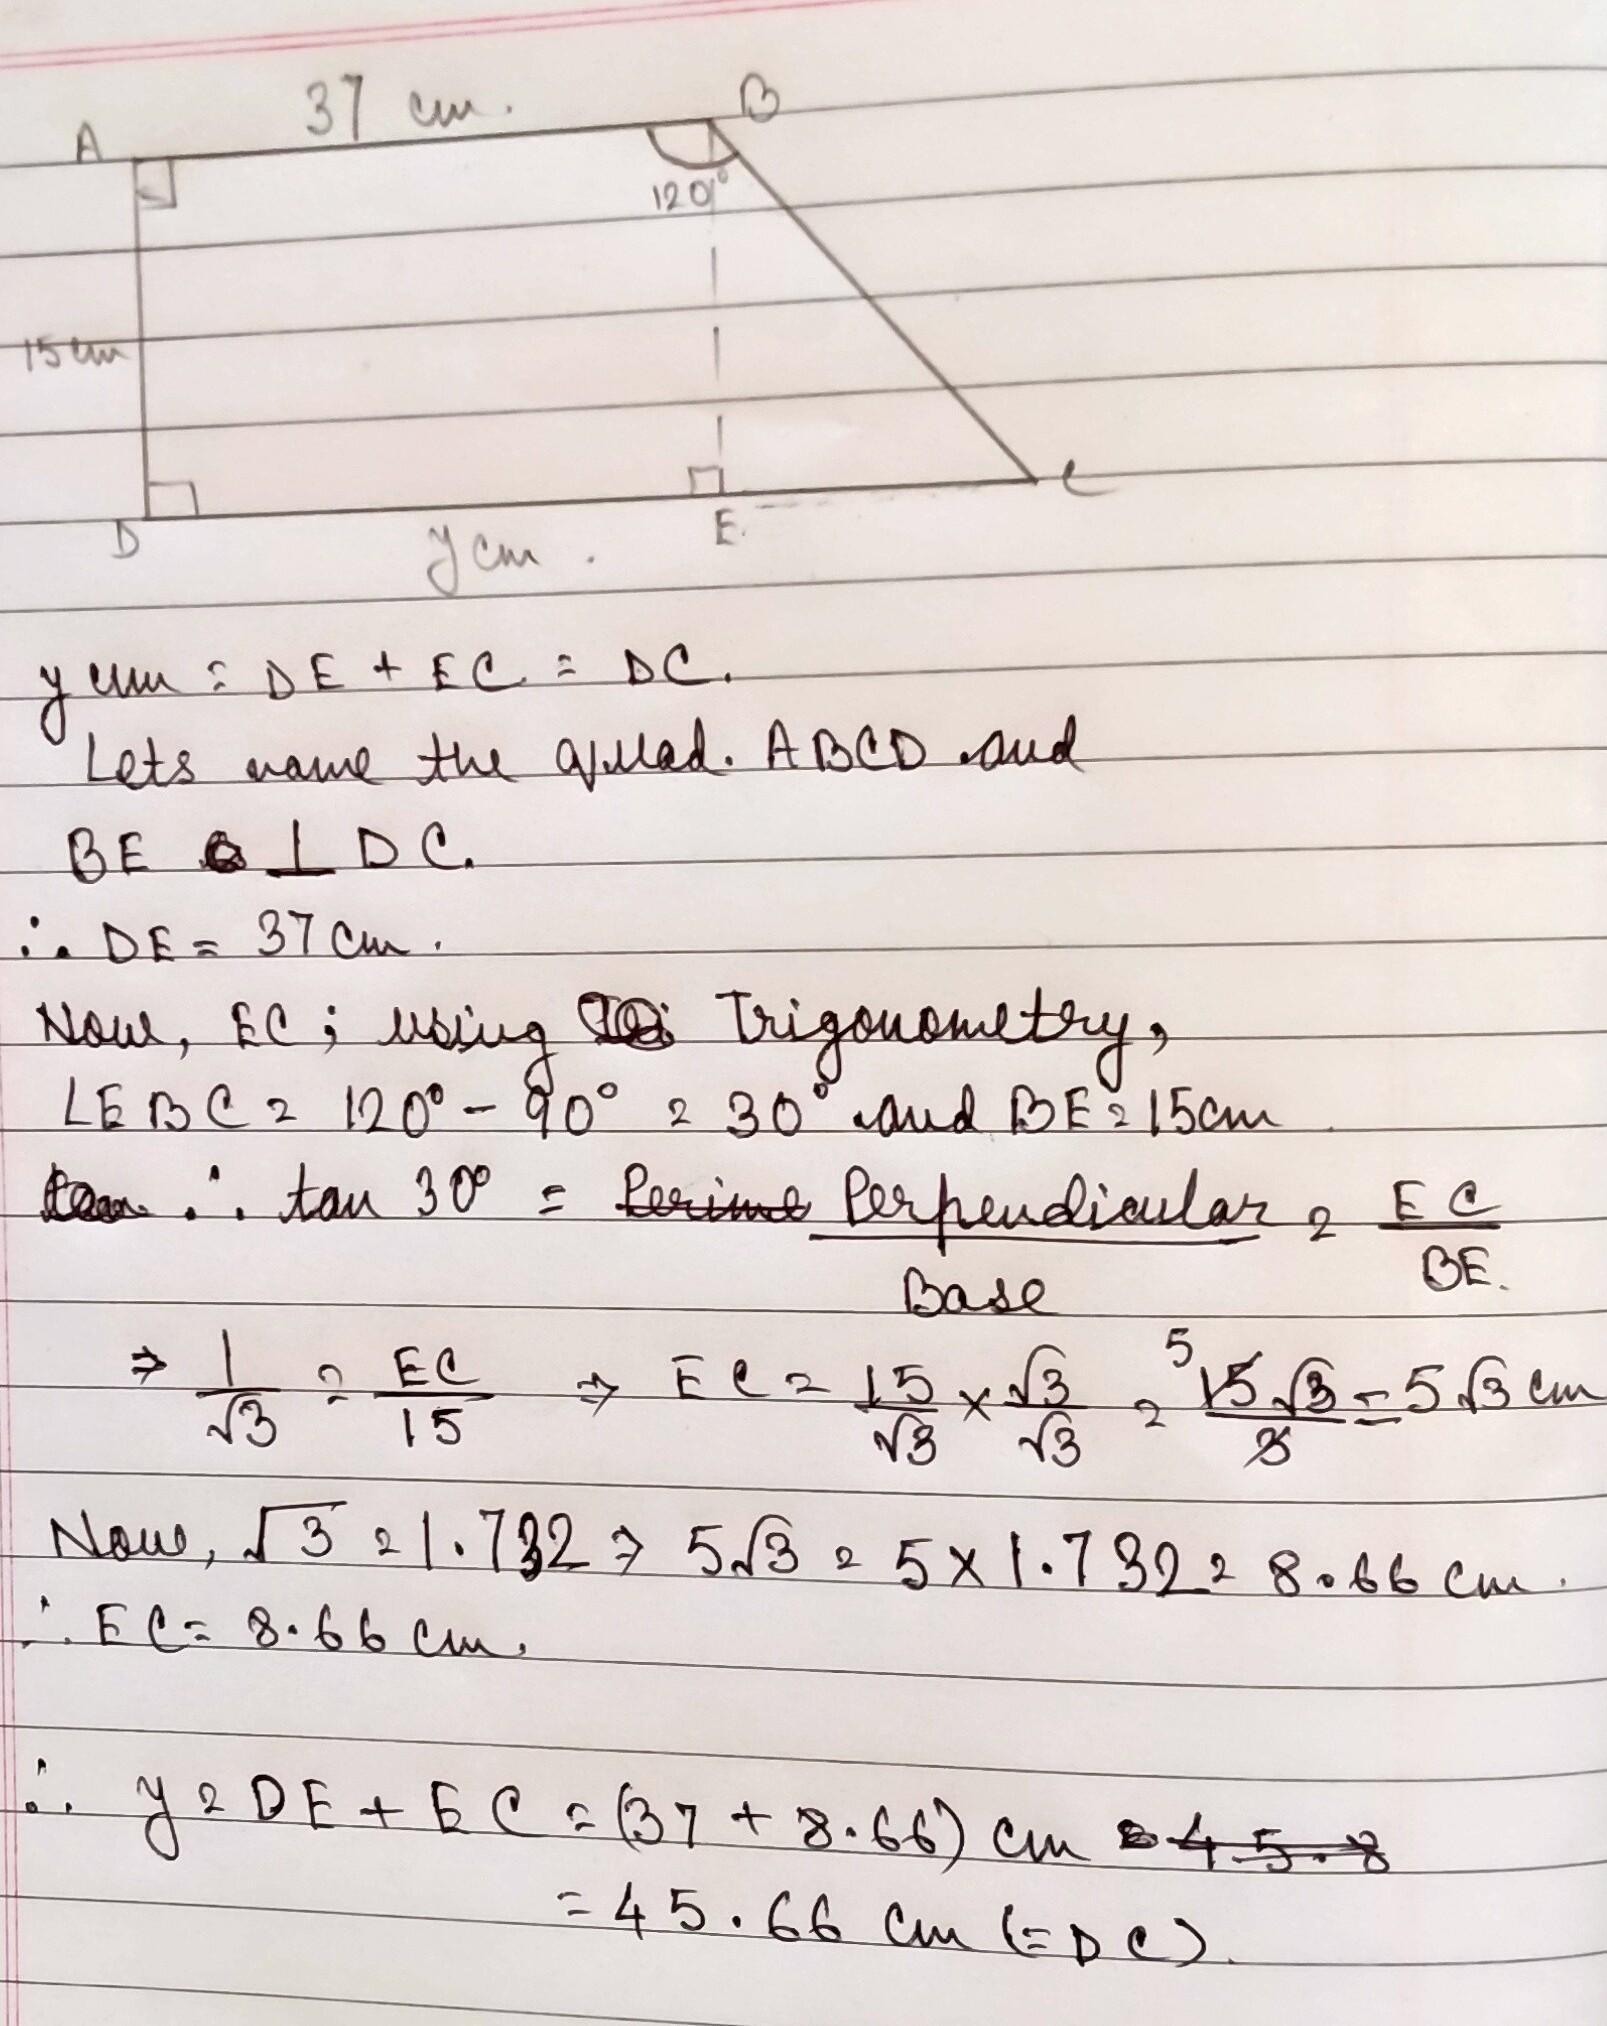 37 cm.
A
B
120°
15 cm
D
E.
C
y cm.
y cm = DE + EC = DC.
Lets name the quad. ABCD and
BE ⊥ DC.
∴ DE = 37 cm.
Now, EC; using Trigonometry,
∠EBC = 120° - 90° = 30° and BE = 15cm
∴ tan 30° = Perpendicular/Base = EC/BE.
⇒ 1/√3 = EC/15 ⇒ EC = 15/√3 × √3/√3 = 15√3/3 = 5√3 cm
Now, √3 = 1.732 ⇒ 5√3 = 5×1.732 = 8.66 cm.
∴ EC = 8.66 cm.
∴ y = DE + EC = (37 + 8.66) cm
= 45.66 cm (= DC).